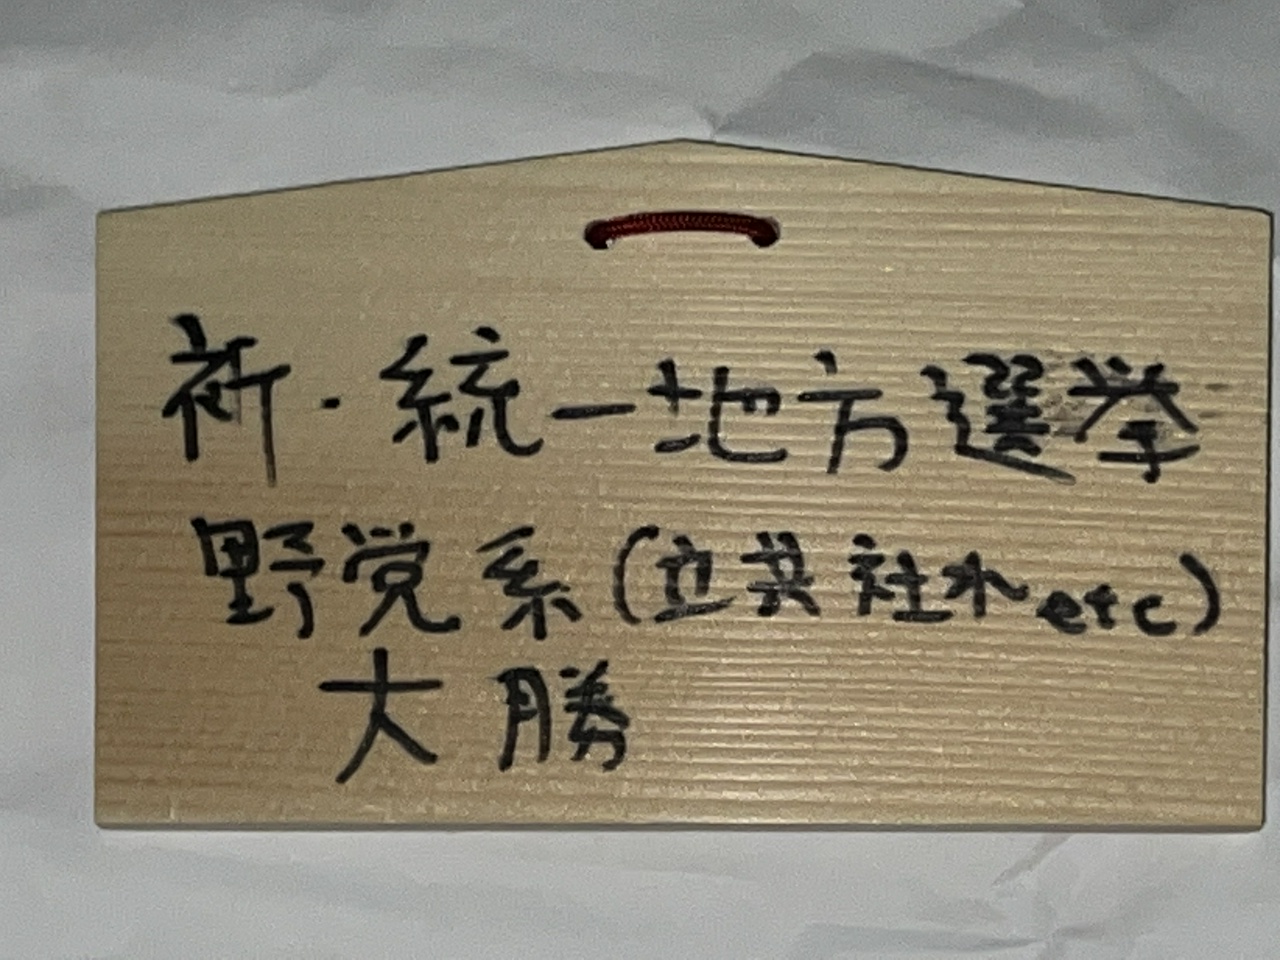 祈・統一地方選挙
野党系(立共社れetc)
大勝